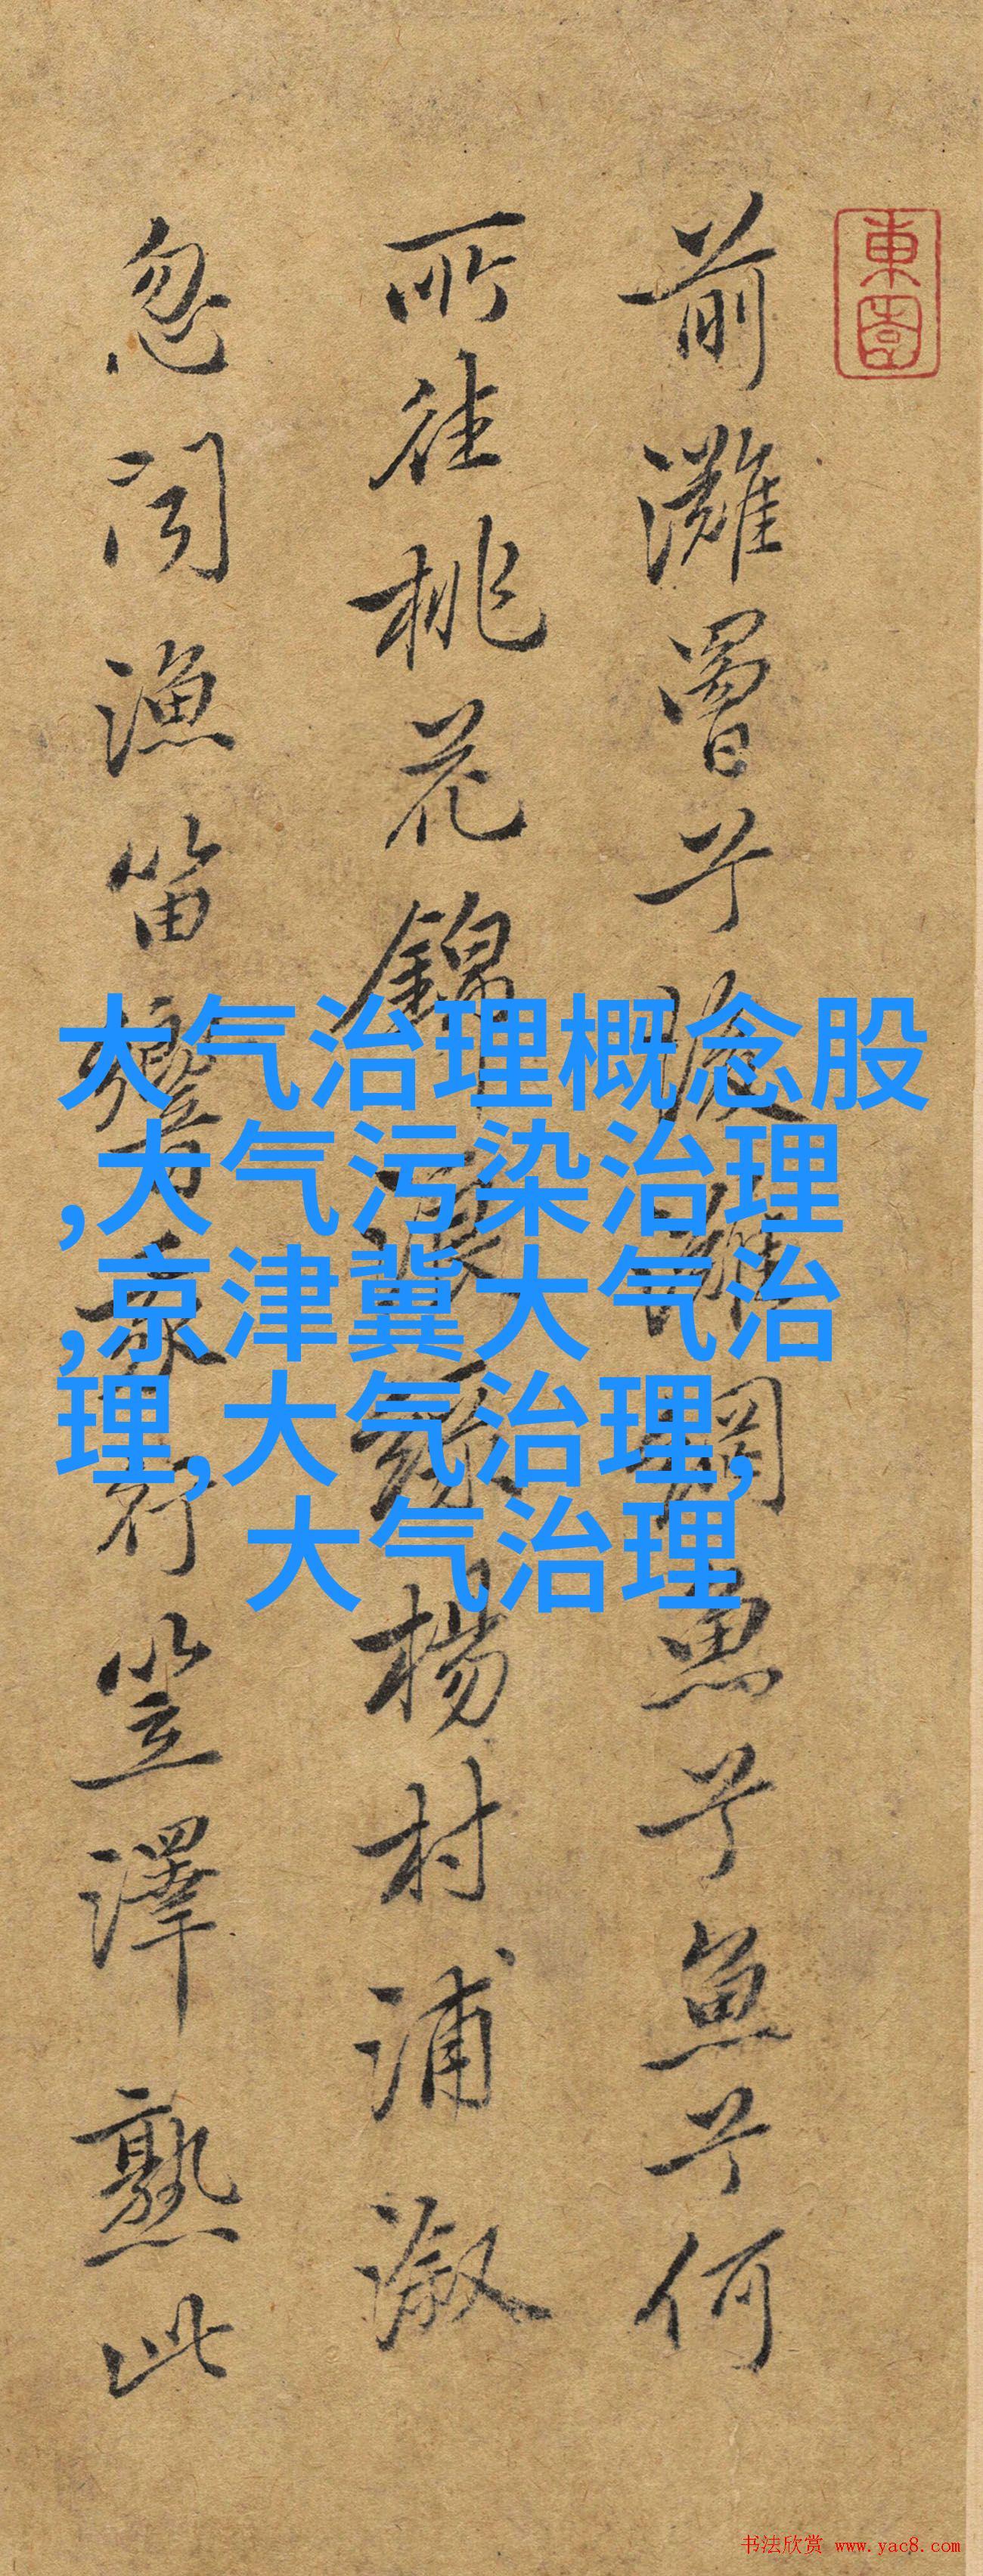 前灘罾兮後灘網魚兮魚兮何
所往桃花錦浪綠楊村浦漵
忽聞漁笛響我行笠澤熟此
大气治理概念股
,大气污染治理
,京津冀大气治
理,大气治理,
大气治理
书法欣赏 www.yac8.com